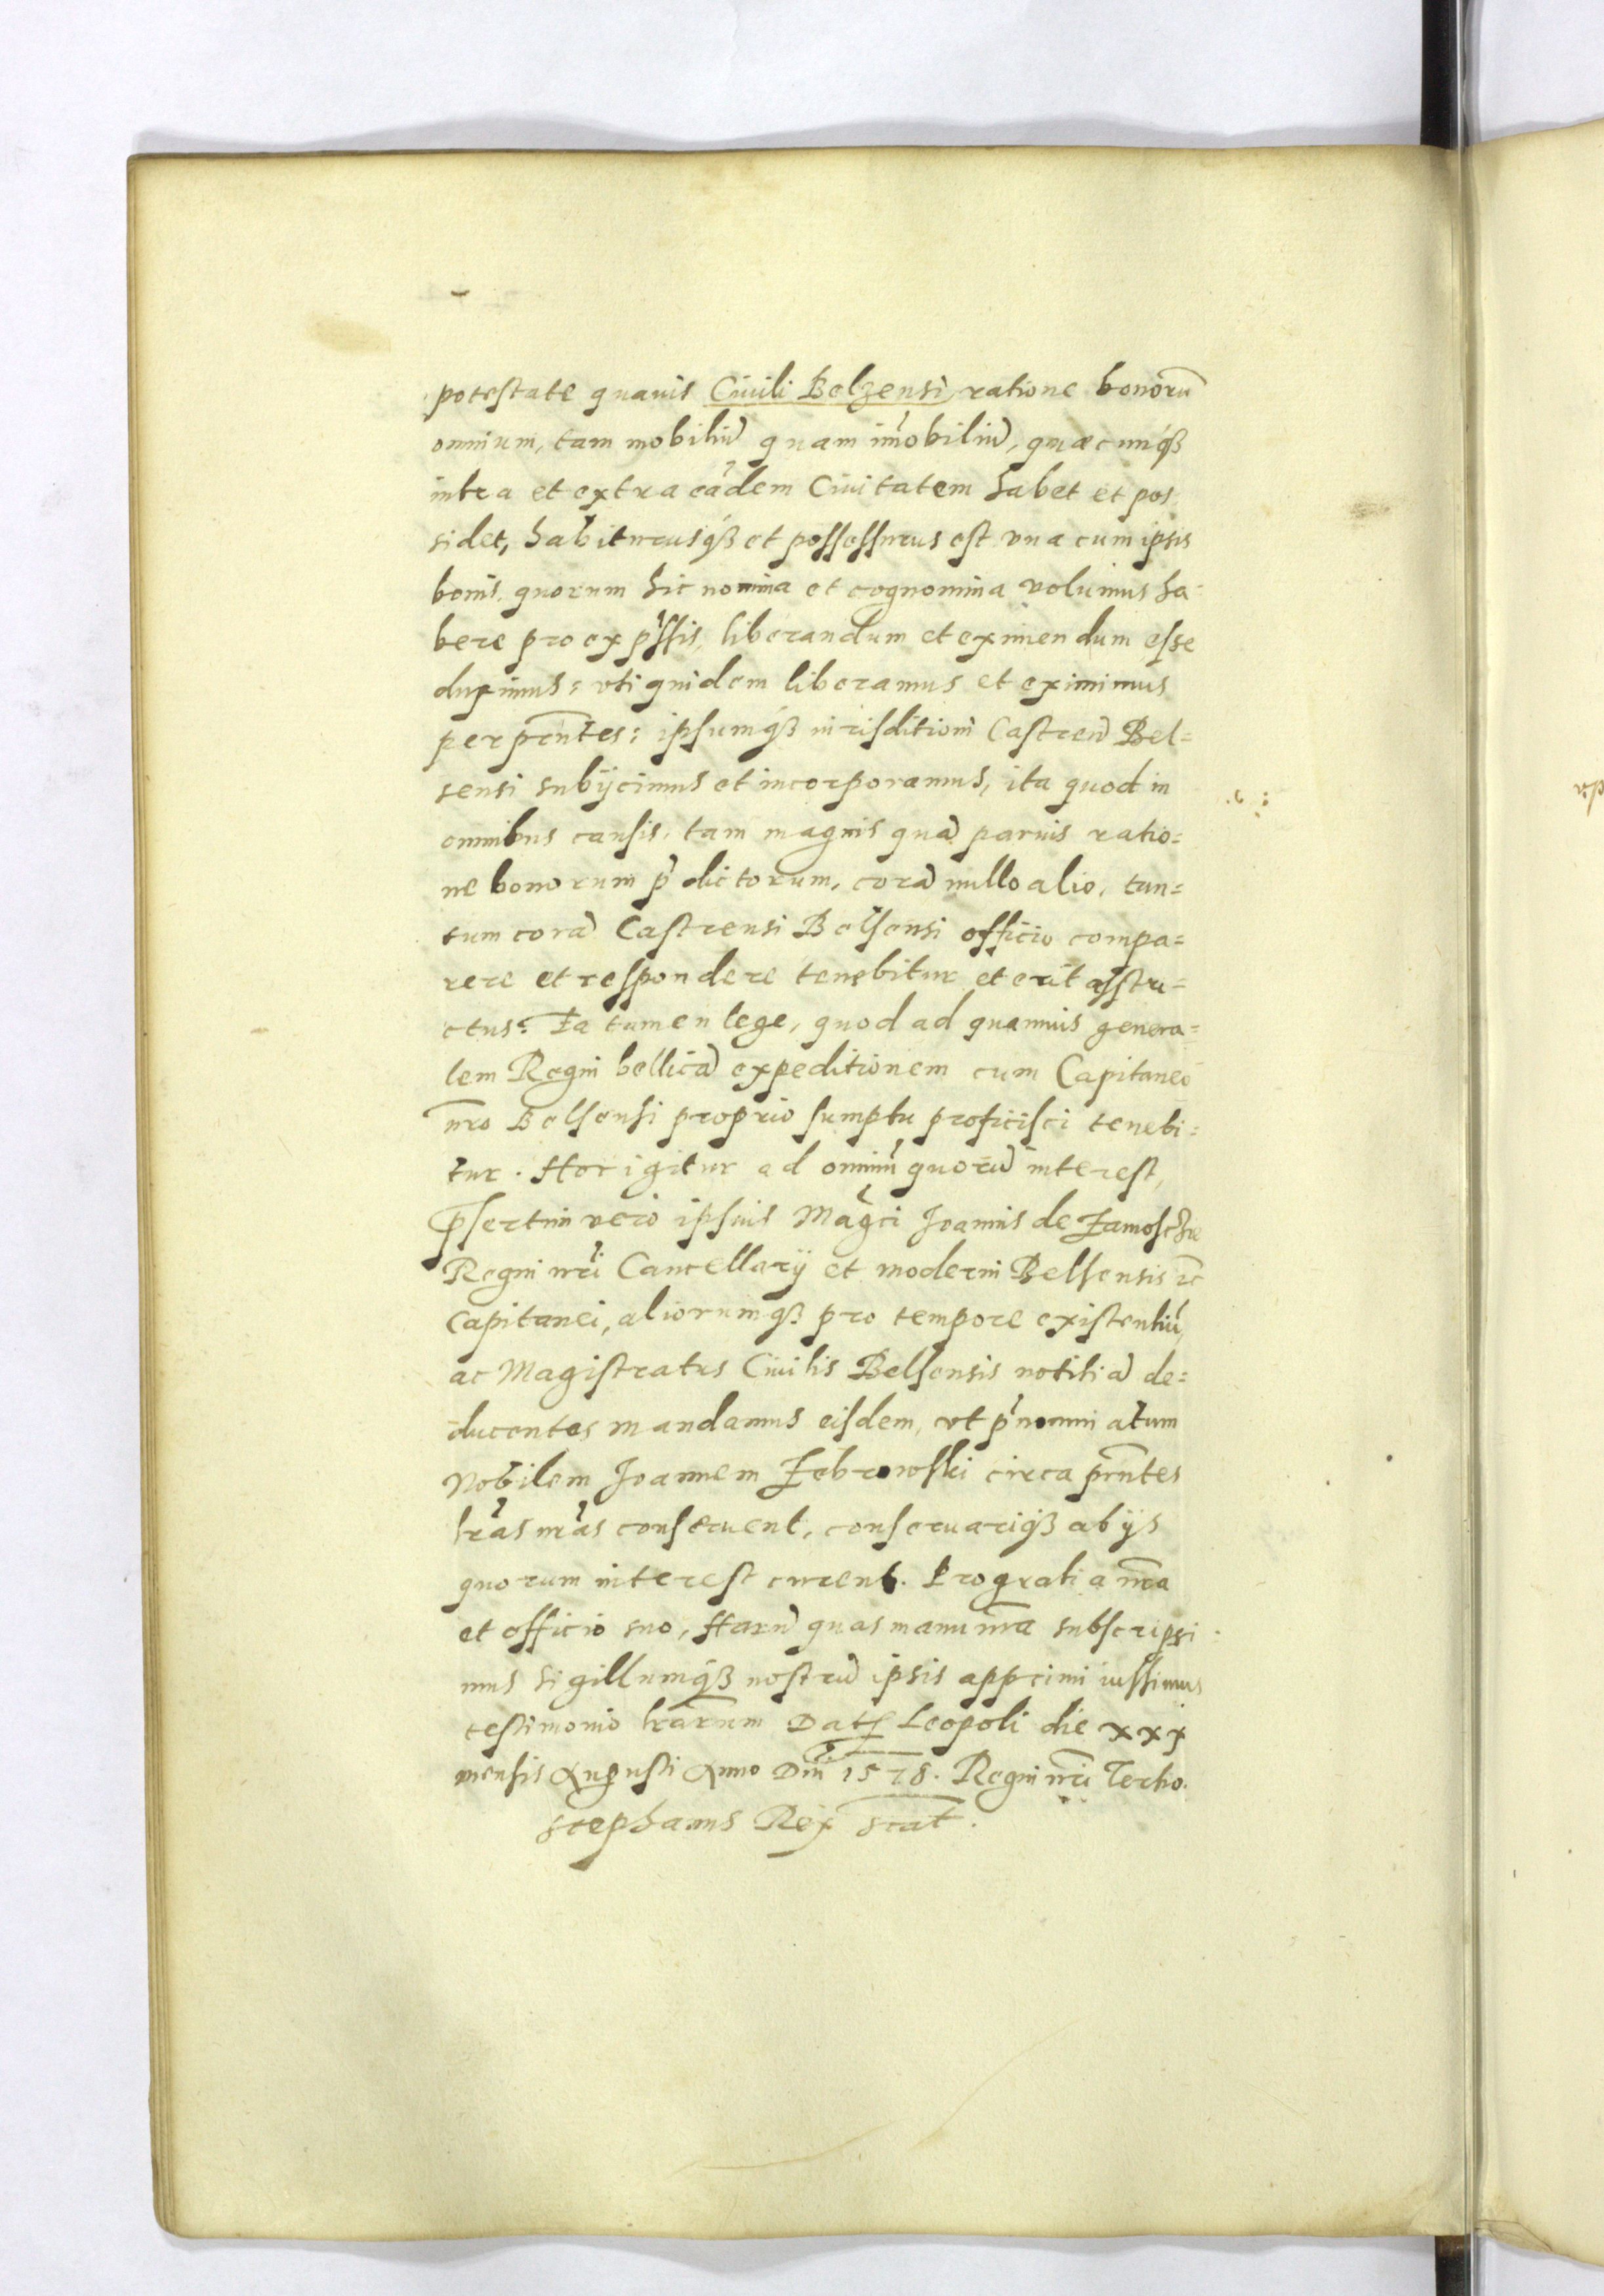 potestate quauis Ciuili Belzensi, ratione bonorū
omnium, tam mobiliū quam im̄obiliū, quæcunqꝫ
intra et extra eādem Ciuitatem habet et pos
sidet, habiturusqꝫ et possessurus est vna cum ipsis
bonis, quorum hic nomina et cognomina volumus ha-
bere pro exp̄ssis, liberandum et eximendum esse
duximus: vti quidem liberamus et eximimus
per pr̄ntes: ipsumqꝫ iurisditioni Castren̄ Bel=
sensi subijcimus et incorporamus, ita quod in
omnibus causis, tam magnis quā paruis ratio=
ne bonorum p̄dictorum, corā nullo alio, tan=
tum corā Castrensi Belsensi officio compa=
rere et respondere tenebitur et erit asstri=
ctus: Ea tamen lege, quod ad quamuis genera=
lem Regni bellicā expeditionem cum Capitaneo
nr̄o Belsensi proprio sumptu proficisci tenebi=
tur. Hoc igitur ad omniū quorū interest,
p̄sertim vero ipsius Maḡci Joannis de Zamosche
Regni nr̄i Cancellarij et moderni Belsensis ꝛc
Capitanei, aliorumqꝫ pro tempore existentiū,
ac Magistratus Ciuilis Belsensis notitiā de=
ducentes mandamus eisdem, vt p̄nominatum
Nobilem Joannem Zebrowski circa pr̄ntes
lr̄as nr̄as conseruent, conseruariqꝫ ab ijs
quorum interest curent. Pro gratia nr̄a
et officio suo, Harū quas manu nr̄a subscripsi
mus sigillumqꝫ nostrū ipsis apprimi iussimus
testimonio lr̄arum Dat̄ Leopoli die xxj
mensis Augusti Anno Dn̄i 1578. Regni nr̄i Tertio.
Stephanus Rex scat̄.